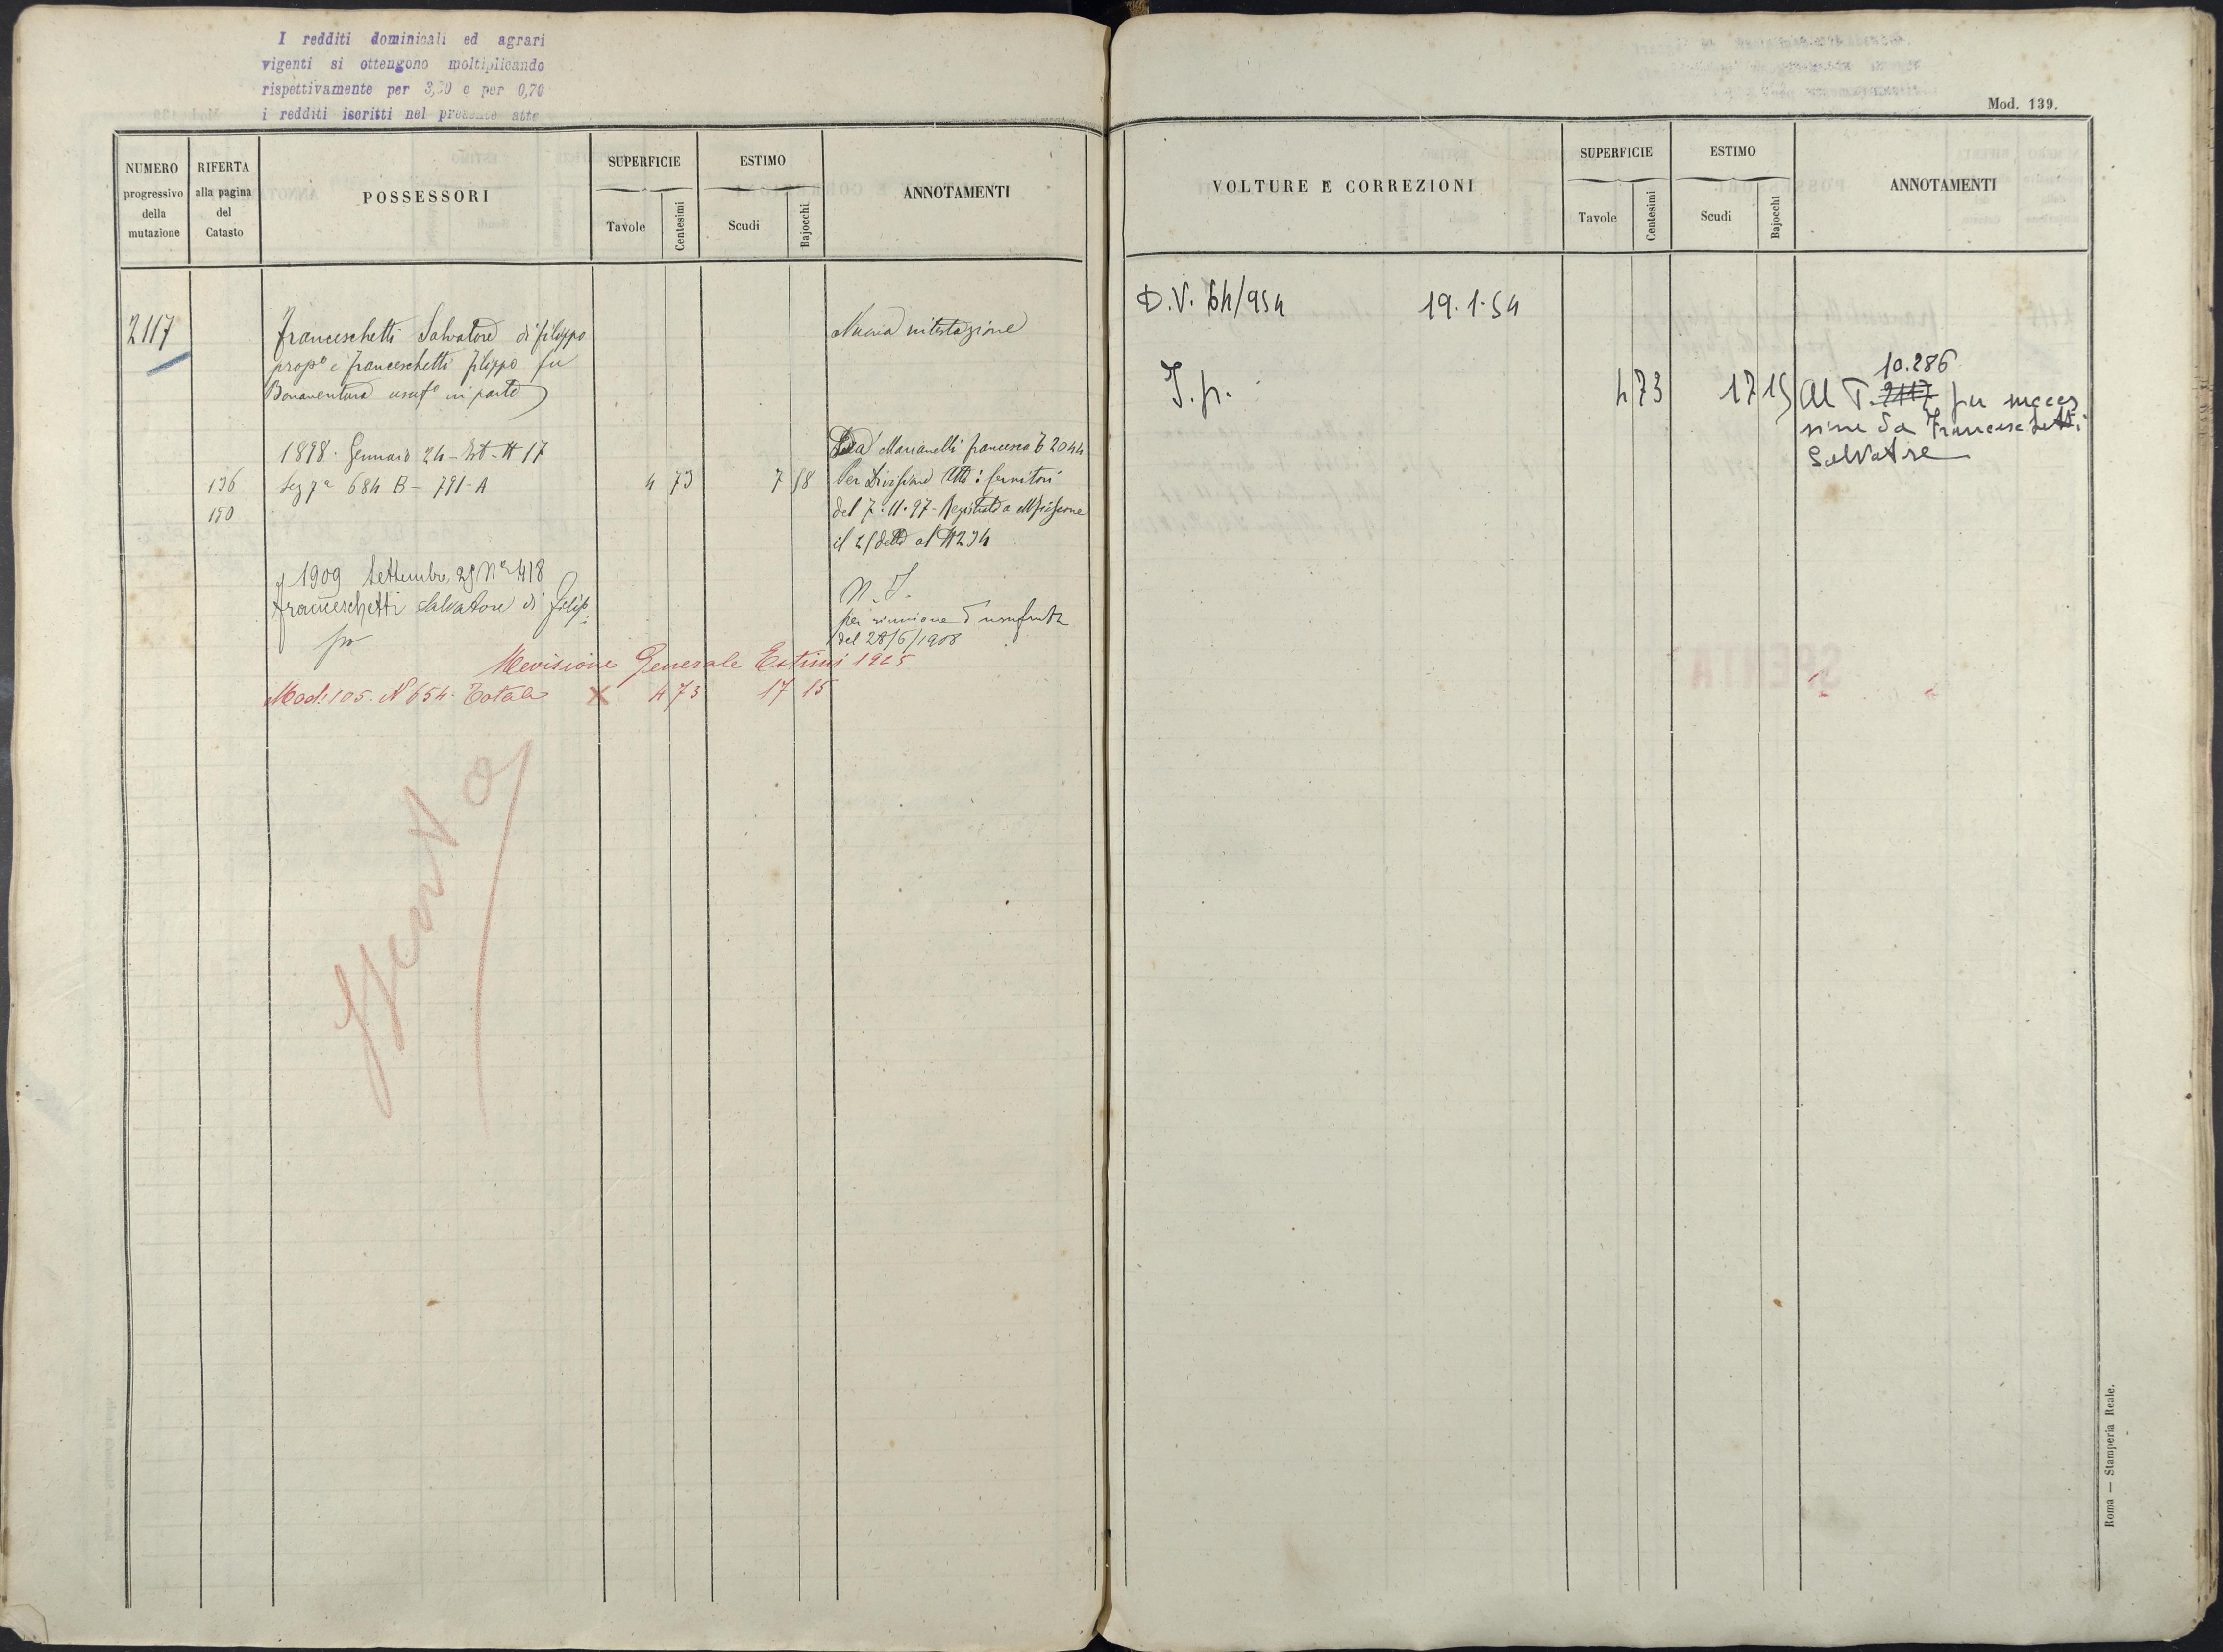 I redditi dominicali ed agrari
vigenti si ottengono moltiplicando
rispettivamente per e per 0,70
i redditi iscritti nel presente atto
NUMERO
progressivo
della
mutazione
RIFERTA
alla pagina
del
Catasto
POSSESSORI
SUPERFICIE
Tavole
Centesimi
ESTIMO
Scudi
Bajocchi
ANNOTAMENTI
2117
Franceschetti Salvatore di filippo
prop° e franceschetti filippo fu
Bonaventura usuf° in parte
Nuova intestazione
1898. Gennaio 24 - Est. N 17
136 Sez 7ª 684 B - 791-A 4 73 7 58
190
Da Marianelli francesca 2044
Per Divisione Atti
del 7.11.97 - Registrato a
il detto al N 234
1909 Settembre, 25 N° 418
Franceschetti Salvatore di Filip-
po
N. I.
per riunione d'usufrutto
del 28/6/1908
Revisione Generale Estimi 1925
Mod. 105. N 654. Totale X 4 73 17 15
Spento
Mod. 139.
VOLTURE E CORREZIONI
SUPERFICIE
Tavole
Centesimi
ESTIMO
Scudi
Bajocchi
ANNOTAMENTI
D.V. 64/954 19.1.54
I.p. 4 73 17 15
10.286
Al T. 2117 per succes
sione da Franceschetti
Salvatore
Roma — Stamperia Reale.